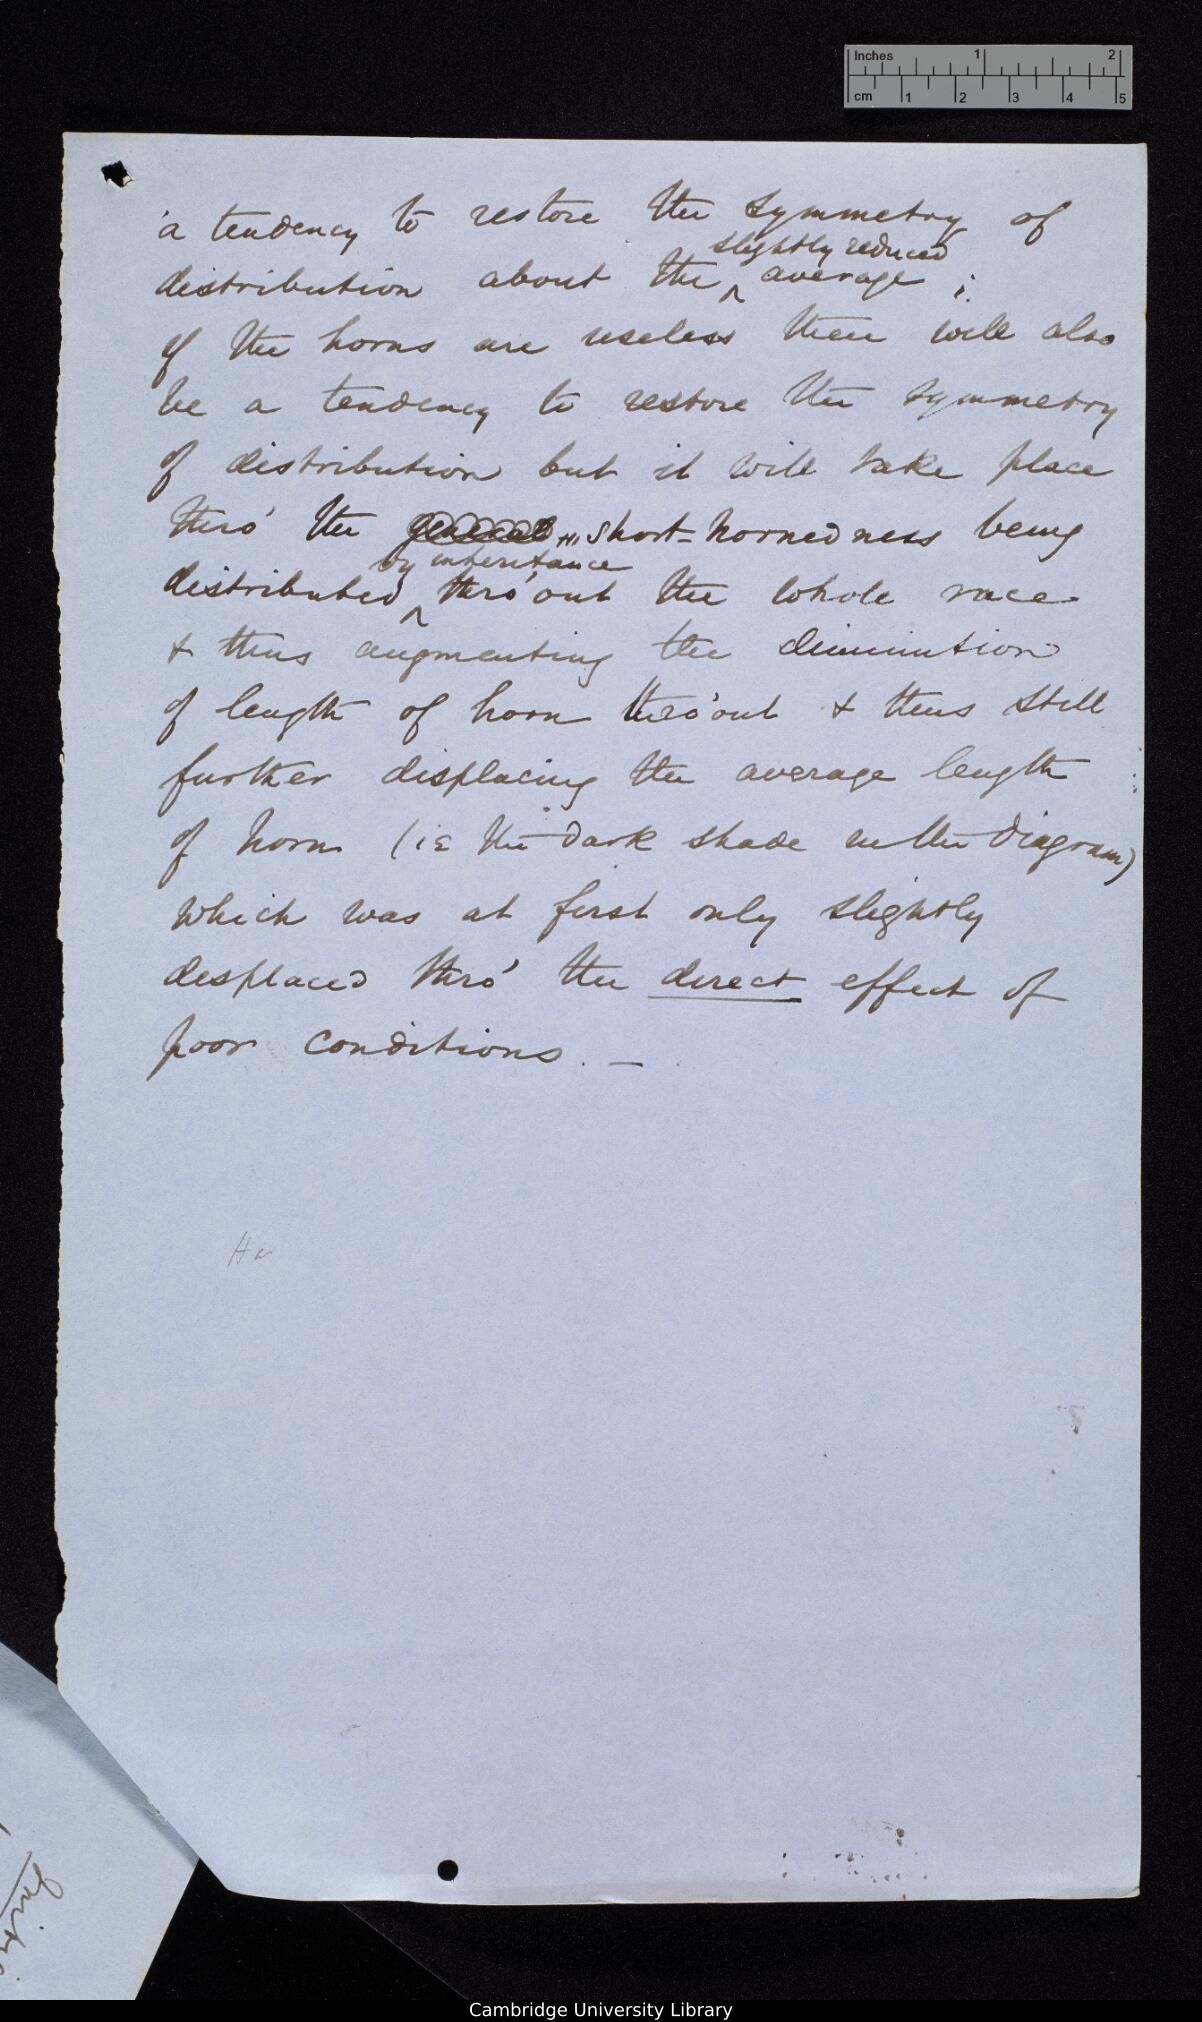 Inches 1 2
cm 1 2 3 4 5
a tendency to restore the symmetry of
slightly reduced
distribution about the ^ average ;
if the horns are useless there will also
be a tendency to restore the symmetry
of distribution but it will take place
thro' the general short-hornedness being
by inheritance
distributed ^ thro'out the whole race
& thus augmenting the diminution
of length of horn thro'out & thus still
further displacing the average length
of horn (ie the dark shade in the diagram)
which was at first only slightly
displaced thro' the direct effect of
poor conditions. —
Cambridge University Library